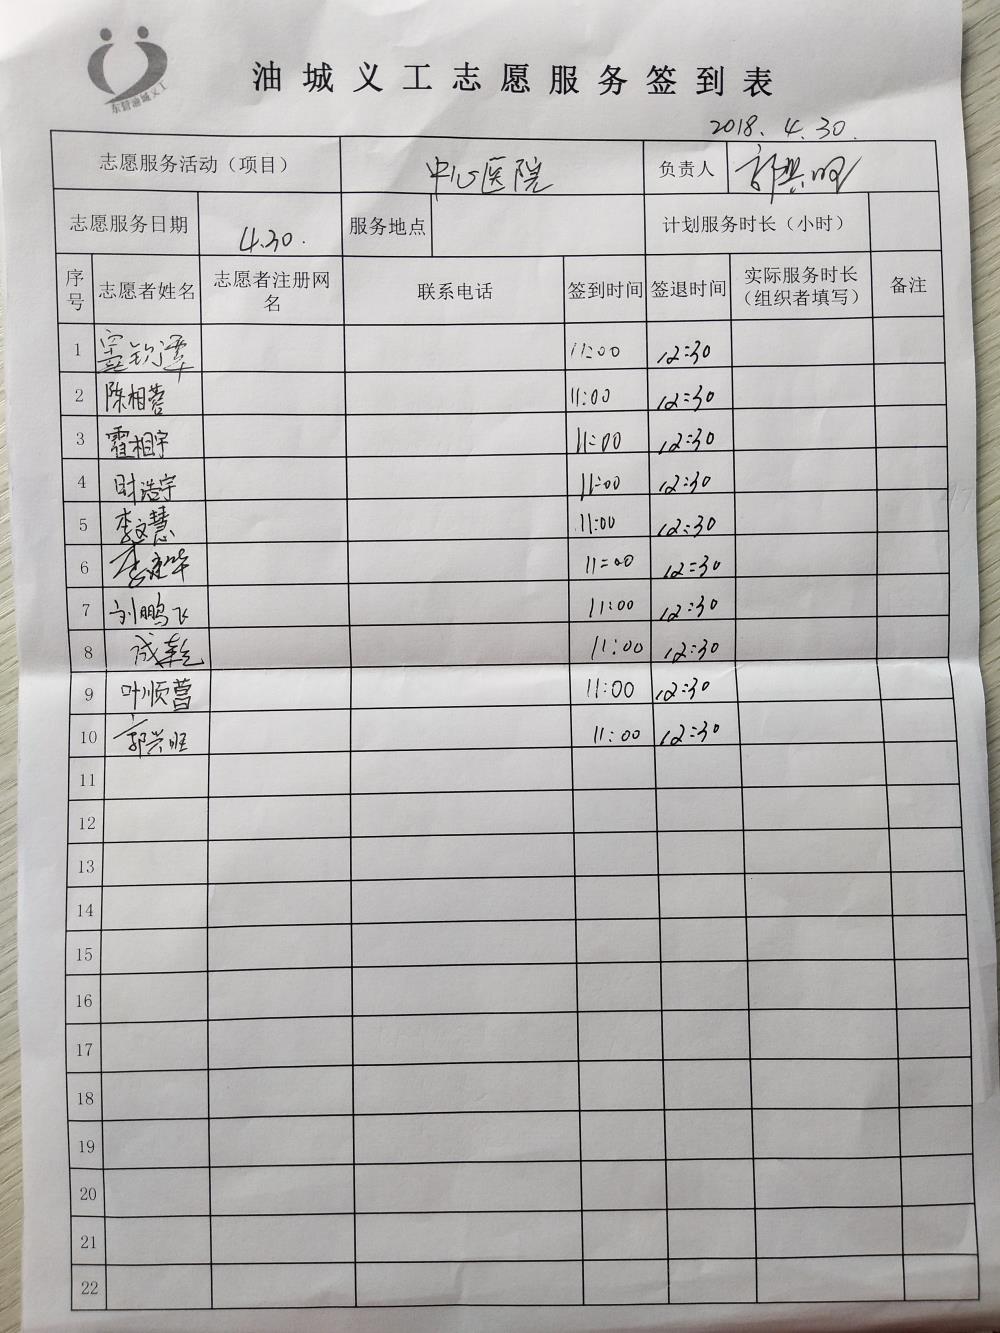 东营油城义工
油城义工志愿服务签到表
2018.4.30.
志愿服务活动（项目） 中心医院 负责人
志愿服务日期 4.30. 服务地点 计划服务时长（小时）
序号 志愿者姓名 志愿者注册网名 联系电话 签到时间 签退时间 实际服务时长（组织者填写） 备注
1 11:00 12:30
2 陈相蓉 11:00 12:30
3 霍相宇 11:00 12:30
4 时浩宇 11:00 12:30
5 李文慧 11:00 12:30
6 李建华 11:00 12:30
7 刘鹏飞 11:00 12:30
8 成乾 11:00 12:30
9 叶顺营 11:00 12:30
10 郭兴旺 11:00 12:30
11
12
13
14
15
16
17
18
19
20
21
22